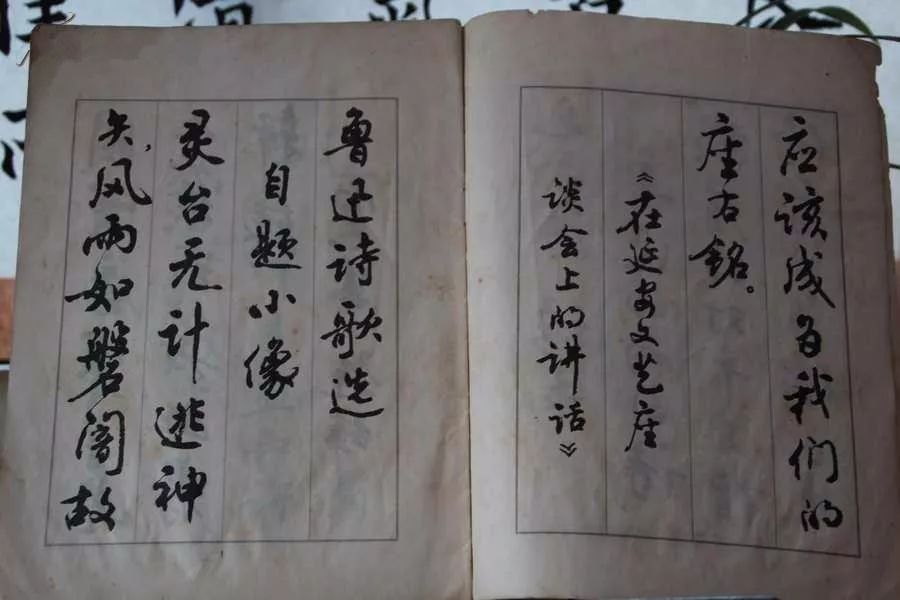 应该成为我们的
座右铭。
《在延安文艺座
谈会上的讲话》
鲁迅诗歌选
自题小像
灵台无计逃神
矢，风雨如磐闇故